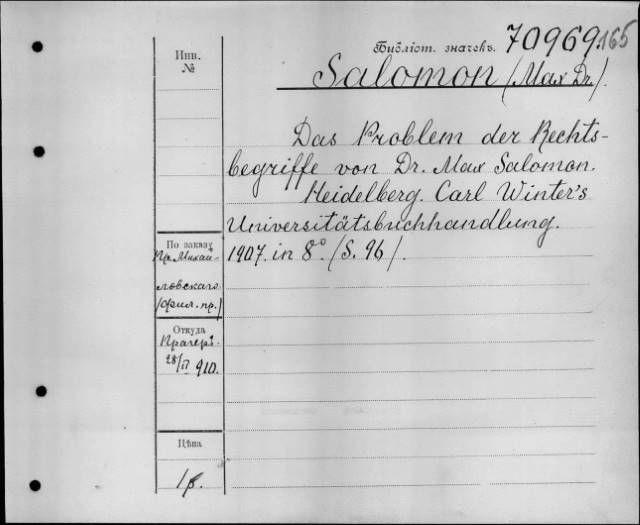 Инв.
№
Библіот. значекъ. 70969.165
Salomon (Max Dr.).
Das Problem der Rechts-
begriffe von Dr. Max Salomon.
Heidelberg. Carl Winter's
Universitätsbuchhandlung.
1907. in 8°. (S. 96).
По заказу
Пр. Михай-
ловскаго
(фил. пр.)
Откуда
Прагеръ.
28/II 910.
Цѣна
1 р.